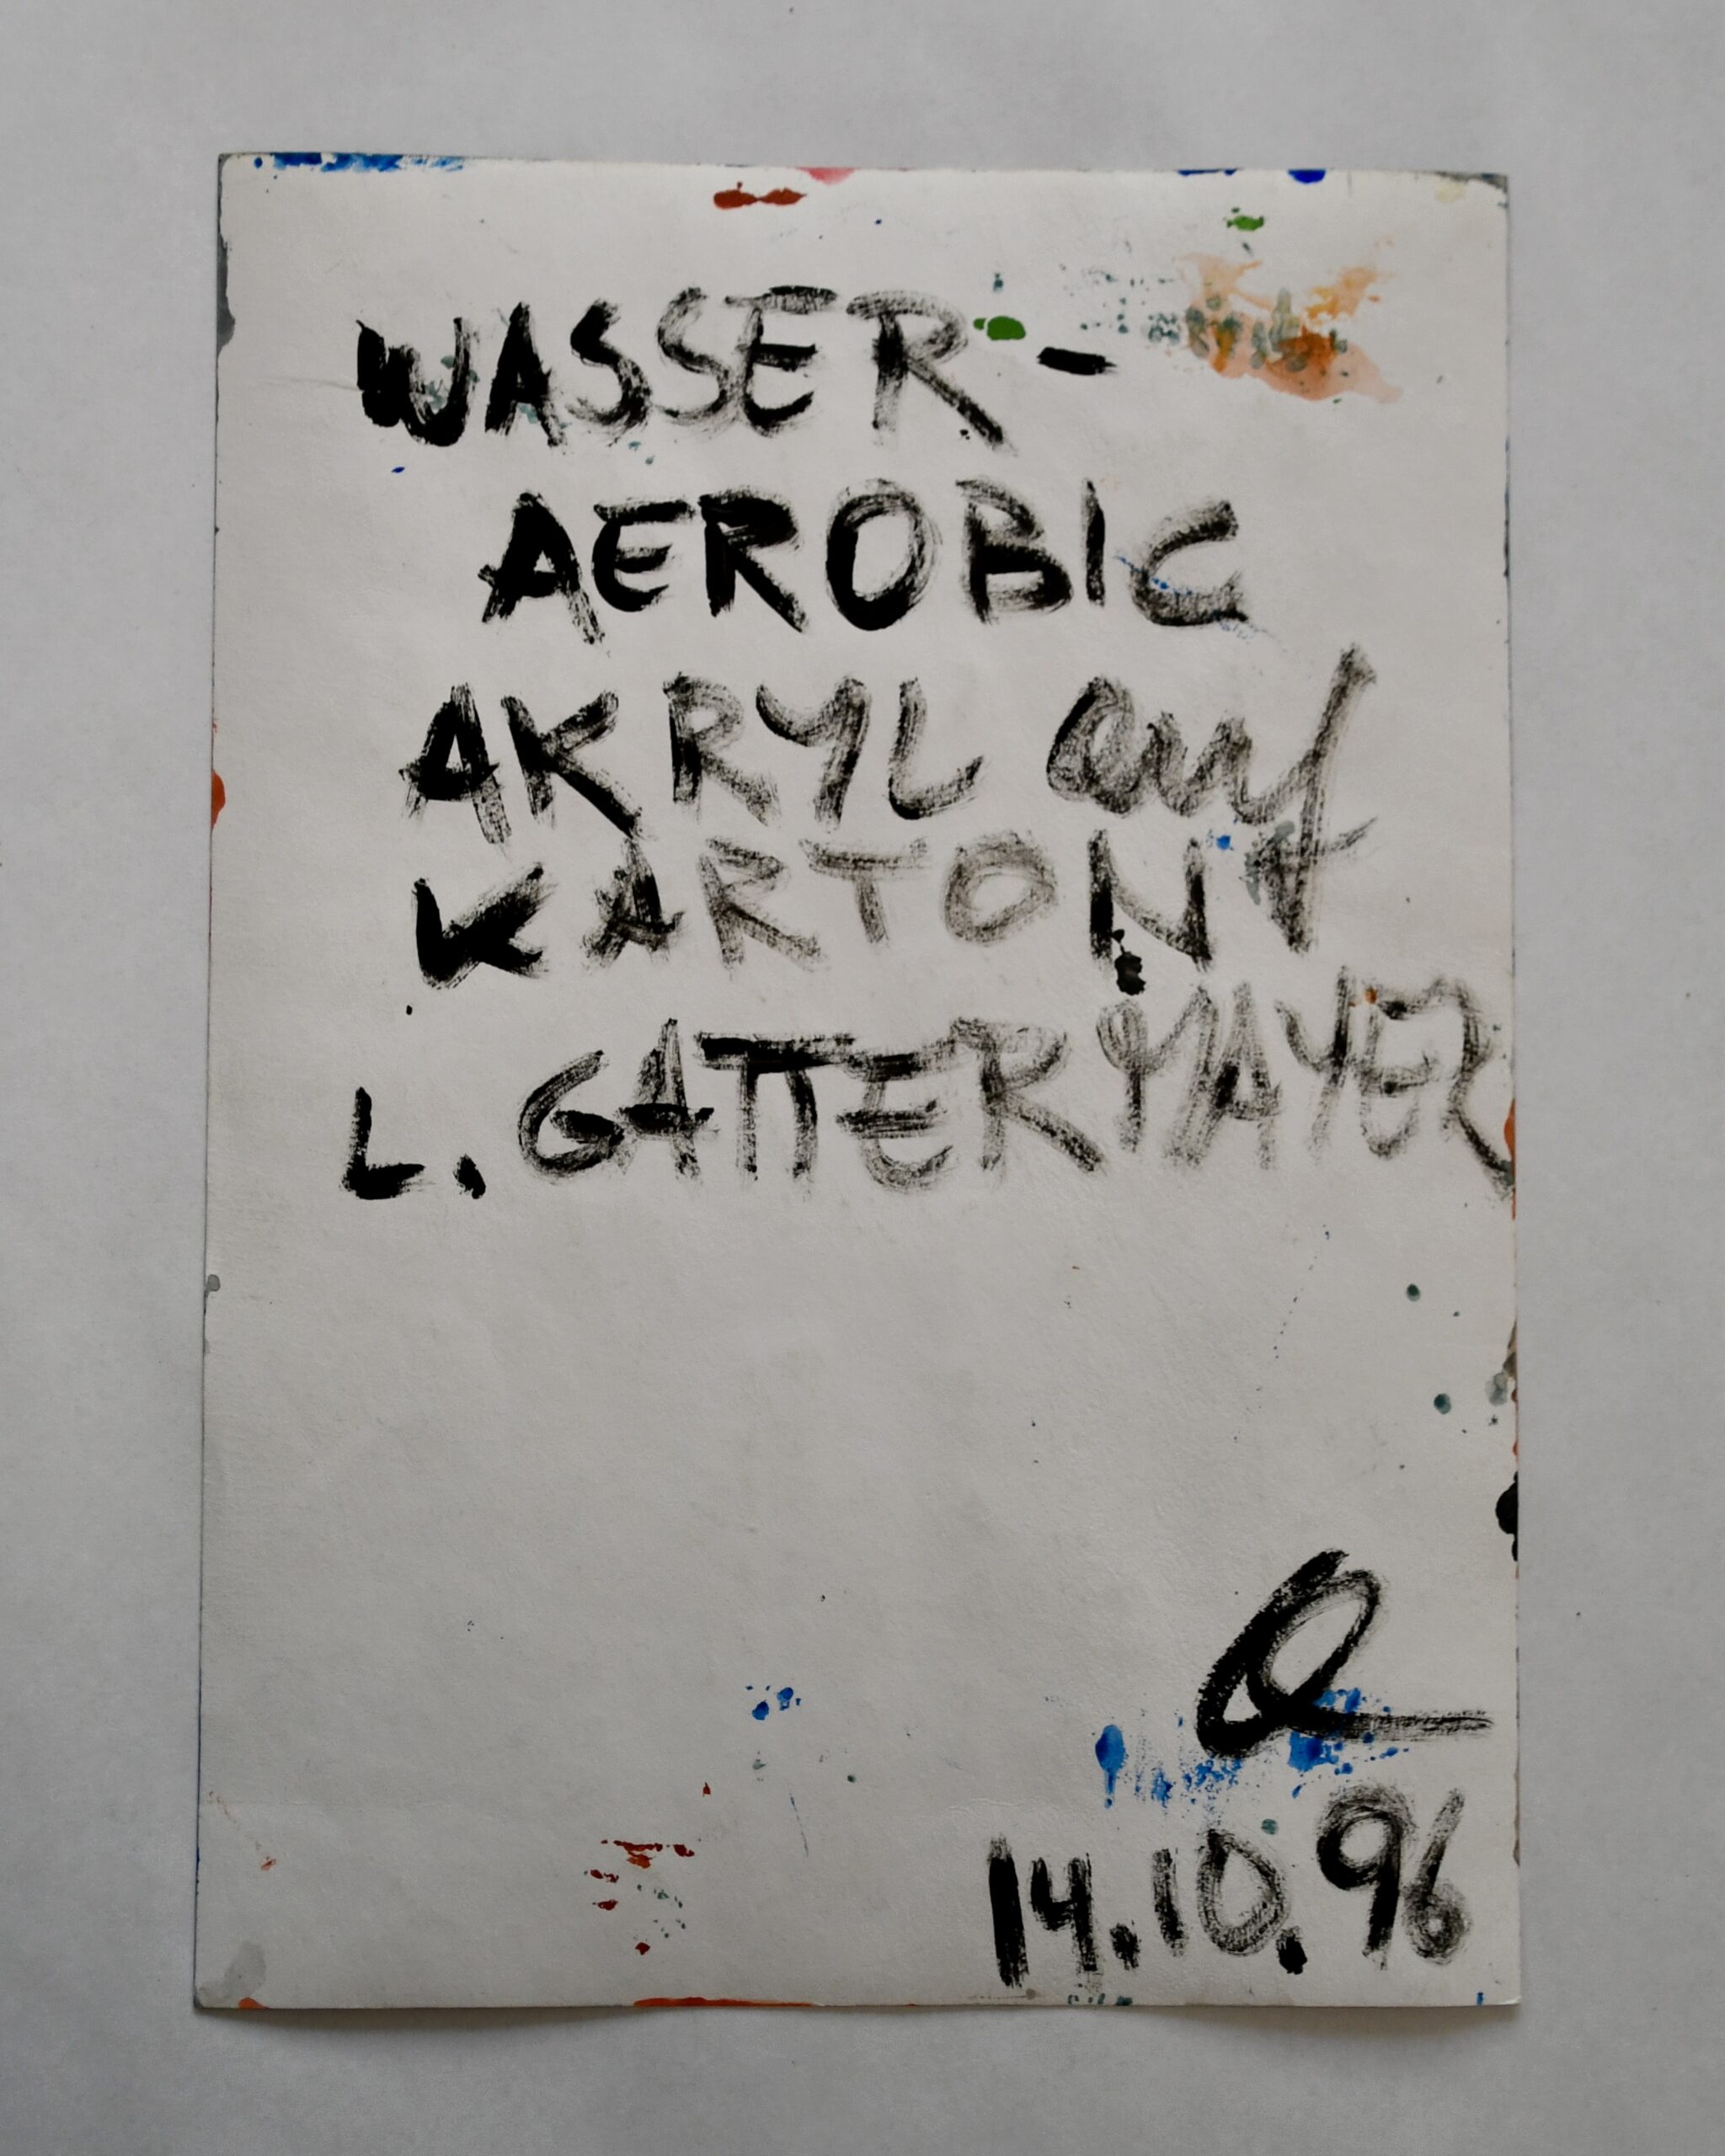 WASSER-
AEROBIC
AKRYL auf
KARTON
L. GATTERMAYER
14.10.96